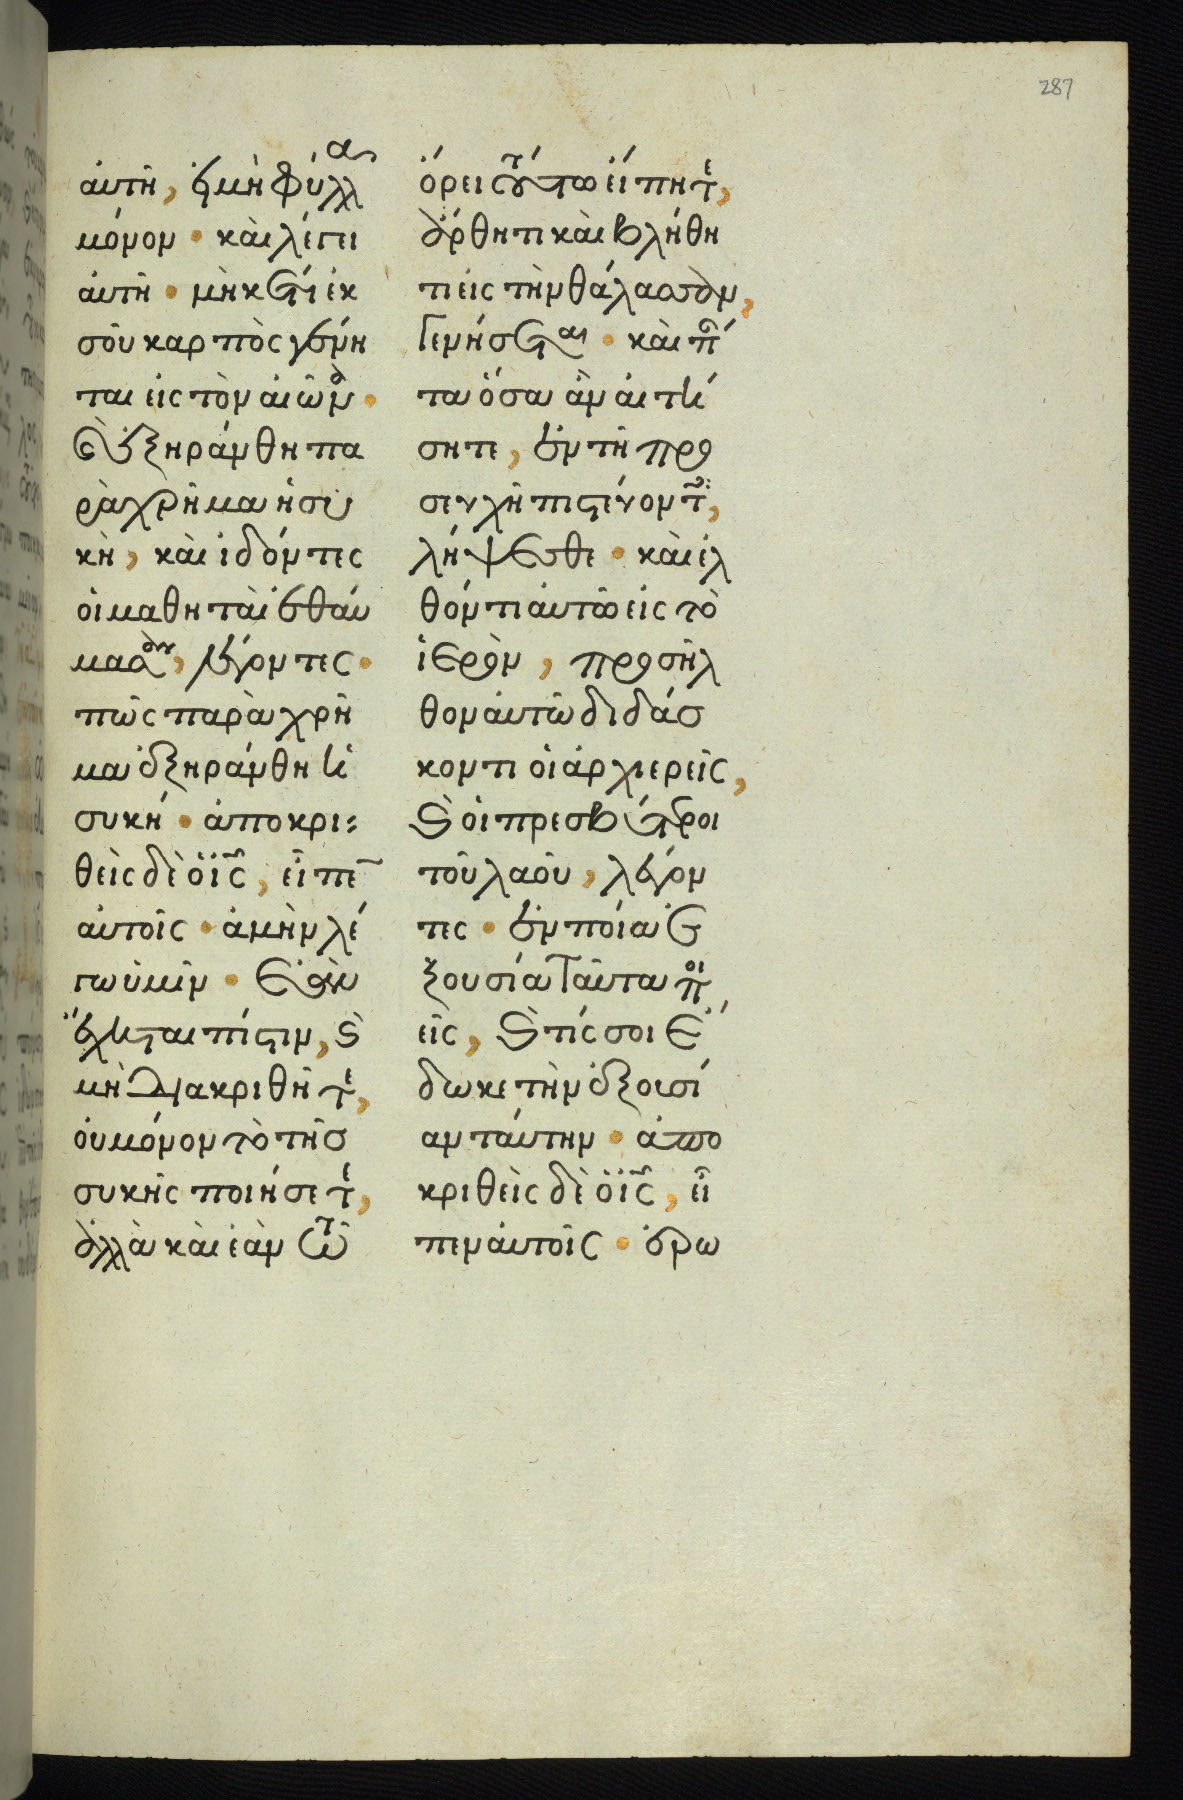 287
αὐτῆ, εἰ μὴ φύλλα
μόνον · καὶ λέγει
αὐτῆ · μηκέτι ἐκ
σοῦ καρπὸς γένη
ται εἰς τὸν αἰῶνα ·
καὶ ἐξηράνθη πα
ραχρῆμα ἡ συ
κῆ, καὶ ἰδόντες
οἱ μαθηταὶ ἐθαύ
μασαν, λέγοντες ·
πῶς παραχρῆ
μα ἐξηράνθη ἡ
συκή · ἀποκρι
θεὶς δὲ ὁ ἰς, εἶπε
αὐτοῖς · ἀμὴν λέ
γω ὑμῖν · ἐὰν
ἔχηται πίστιν, καὶ
μὴ διακριθῆτε,
οὐ μόνον τὸ τῆσ
συκῆς ποιήσετε,
ἀλλὰ καὶ ἐὰν τῶ
ὄρει τούτω εἴπητε,
ἄρθητι καὶ βλήθη
τι εἰς τὴν θάλασσαν,
γενήσεται · καὶ πάν
τα ὅσα ἂν αἰτή
σητε, ἐν τῆ προ
σευχῆ πιστεύοντες,
λήψεσθε · καὶ ἐλ
θόντι αὐτῶ εἰς τὸ
ἱερὸν, προσῆλ
θον αὐτῶ διδάσ
κοντι οἱ ἀρχιερεῖς,
καὶ οἱ πρεσβύτεροι
τοῦ λαοῦ, λέγον
τες · ἐν ποία ἐ
ξουσία ταῦτα ποι
εῖς, καὶ τίς σοι ἔ
δωκε τὴν ἐξουσί
αν ταύτην · ἀπο
κριθεὶς δὲ ὁ ἰς, εἶ
πεν αὐτοῖς · ἐρω